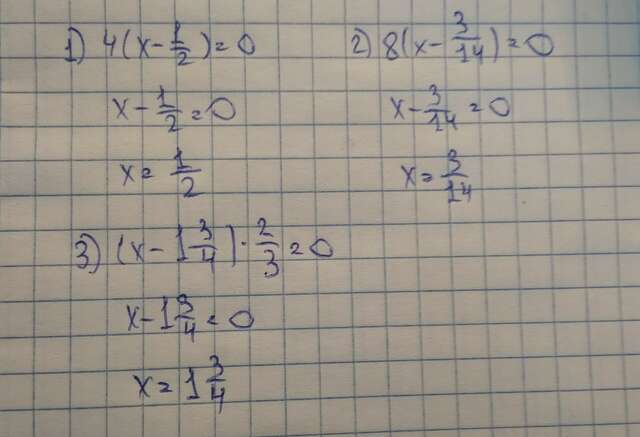 1) 4(x-1/2)=0
x-1/2=0
x=1/2
2) 8(x-3/14)=0
x-3/14=0
x=3/14
3) (x-1 3/4)·2/3=0
x-1 3/4=0
x=1 3/4